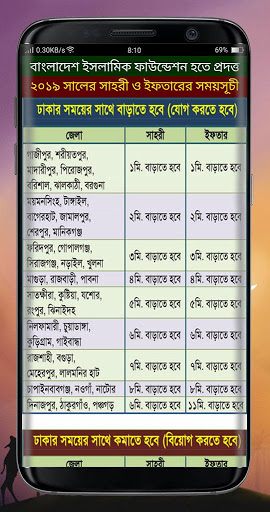 0.30KB/s
8:10
82%
বাংলাদেশ ইসলামিক ফাউন্ডেশন হতে প্রদত্ত
২০১৯ সালের সাহরী ও ইফতারের সময়সূচী
ঢাকার সময়ের সাথে বাড়াতে হবে (যোগ করতে হবে)
জেলা সাহরী ইফতার
গাজীপুর, শরীয়তপুর,
মাদারীপুর, পিরোজপুর, ১মি. বাড়াতে হবে ১মি. বাড়াতে হবে
বরিশাল, ঝালকাঠী, বরগুনা
ময়মনসিংহ, টাঙ্গাইল,
বাগেরহাট, জামালপুর, ২মি. বাড়াতে হবে ২মি. বাড়াতে হবে
শেরপুর, মানিকগঞ্জ
ফরিদপুর, গোপালগঞ্জ, ৩মি. বাড়াতে হবে ৩মি. বাড়াতে হবে
সিরাজগঞ্জ, নড়াইল, খুলনা
মাগুড়া, রাজবাড়ী, পাবনা ৪মি. বাড়াতে হবে ৪মি. বাড়াতে হবে
সাতক্ষীরা, কুষ্টিয়া, যশোর, ৫মি. বাড়াতে হবে ৫মি. বাড়াতে হবে
রংপুর, ঝিনাইদহ
নিলফামারী, চুয়াডাঙ্গা, ৬মি. বাড়াতে হবে ৬মি. বাড়াতে হবে
কুড়িগ্রাম, গাইবান্ধা
রাজশাহী, বগুড়া, ৭মি. বাড়াতে হবে ৭মি. বাড়াতে হবে
মেহেরপুর, লালমনির হাট
চাপাইনবাবগঞ্জ, নওগাঁ, নাটোর ৮মি. বাড়াতে হবে ৮মি. বাড়াতে হবে
দিনাজপুর, ঠাকুরগাঁও, পঞ্চগড় ৬মি. বাড়াতে হবে ১১মি. বাড়াতে হবে
ঢাকার সময়ের সাথে কমাতে হবে (বিয়োগ করতে হবে)
জেলা সাহরী ইফতার